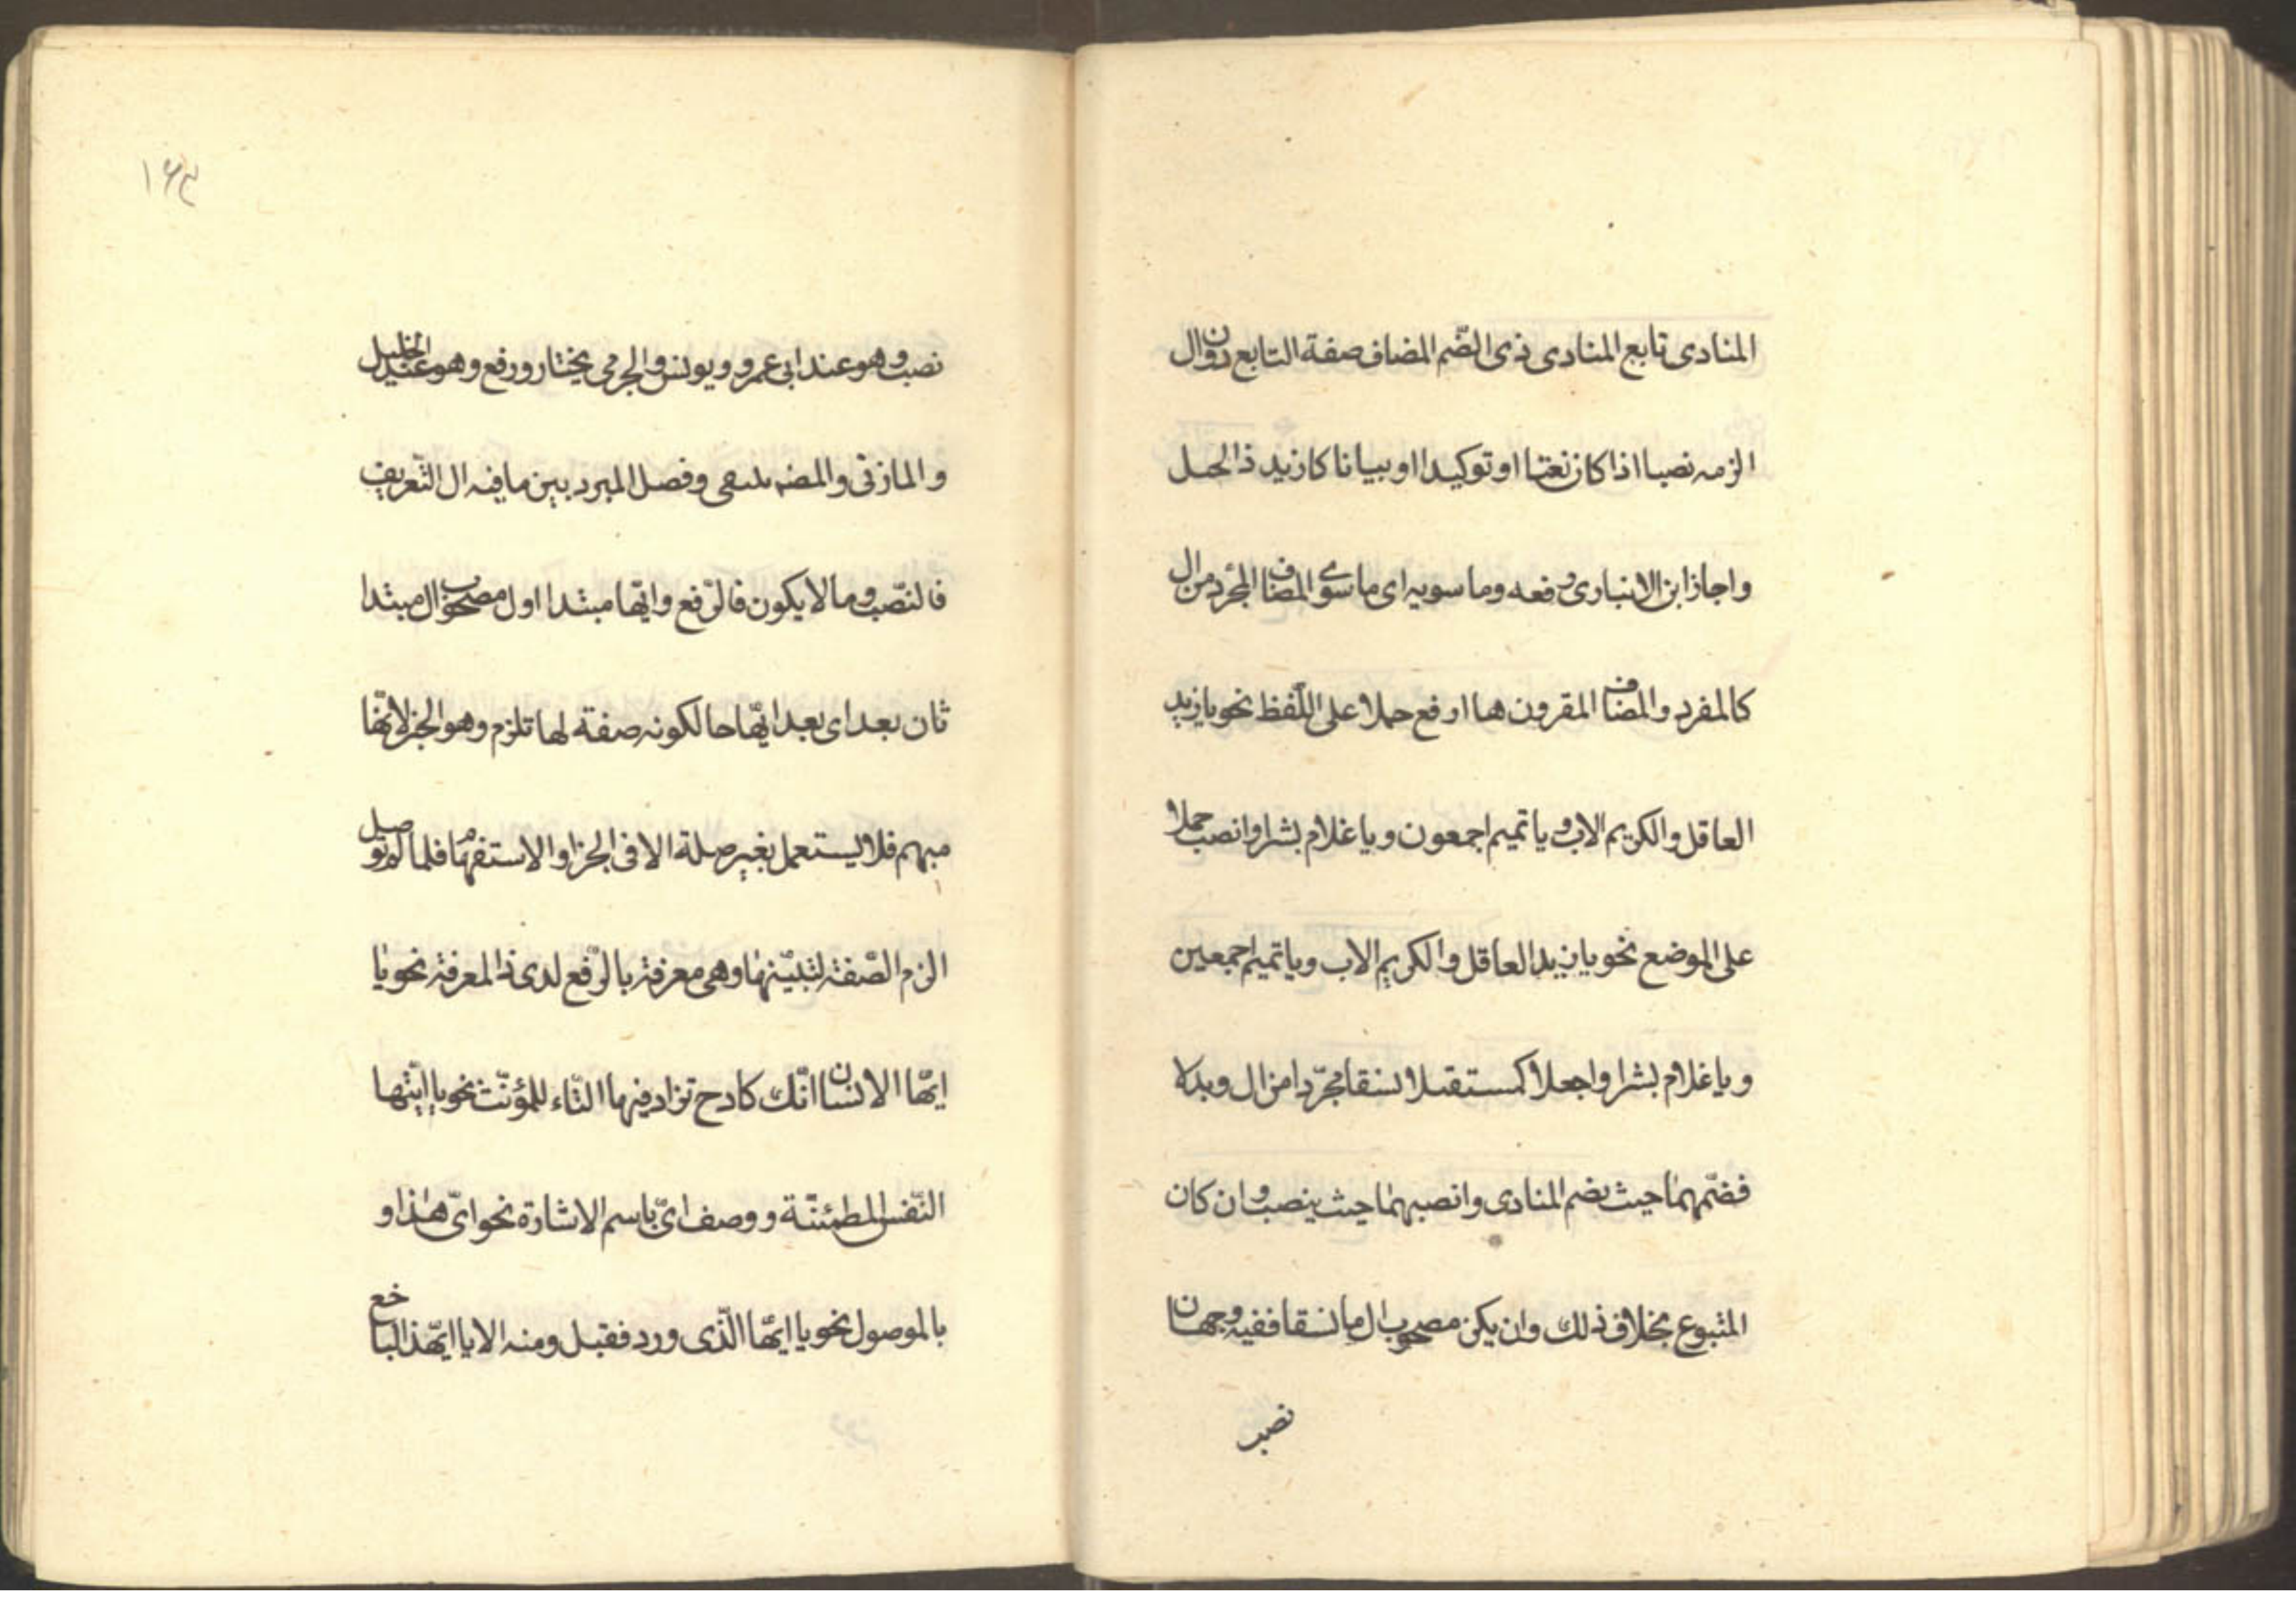 المنادى تابع المنادى ذى الضّم المضاف صفة التابع دون ال
الزمه نصبا اذا كان نعتا او توكيدا او بيانا كازيد ذا الحيل
واجاز ابن الانبارى رفعه وما سويه اى ما سوى المضاف المجرّد من ال
كالمفرد والمضاف المقرون بها ارفع حملا على اللّفظ نحو يا زيد
العاقل والكريم الاب ويا تميم اجمعون ويا غلام بشر او انصب حملا
على الموضع نحو يا زيد العاقل والكريم الاب ويا تميم اجمعين
ويا غلام بشرا واجعلا كمستقلا نسقا مجرّدا من ال وبدلا
فضّمهما حيث يضم المنادى وانصبهما حيث ينصب وان كان
المتبوع بخلاف ذلك وان يكن مصحوب ال ما نسقا ففيه وجهان
نصب
١٤٣
نصب وهو عند ابى عمرو ويونس والجرمى يختار ورفع وهو عند الخليل
والمازنى والمصم وفصل المبرد بين ما فيه ال التّعريف
فالنّصب وما لا يكون فالرّفع وايّها مبتدا اول مصحوب ال مبتدا
ثان بعد اى بعد ايّها حالكونه صفة لها تلزم وهو الجز لانّها
مبهم فلا يستعمل بغير صلة الا فى الجزا والاستفهام فلما لم توصل
الزم الصّفة لتبيّنها وهى معرفة بالرّفع لدى ذا المعرفة نحو يا
ايّها الانسان انّك كادح تزاد فيها التّاء للمؤنّث نحو يا ايّتها
النّفس المطمئنّة ووصف اىّ باسم الاشارة نحو اىّ هذا و
بالموصول نحو يا ايّها الّذى ورد فقبل ومنه الا يا ايّهذا الباخع